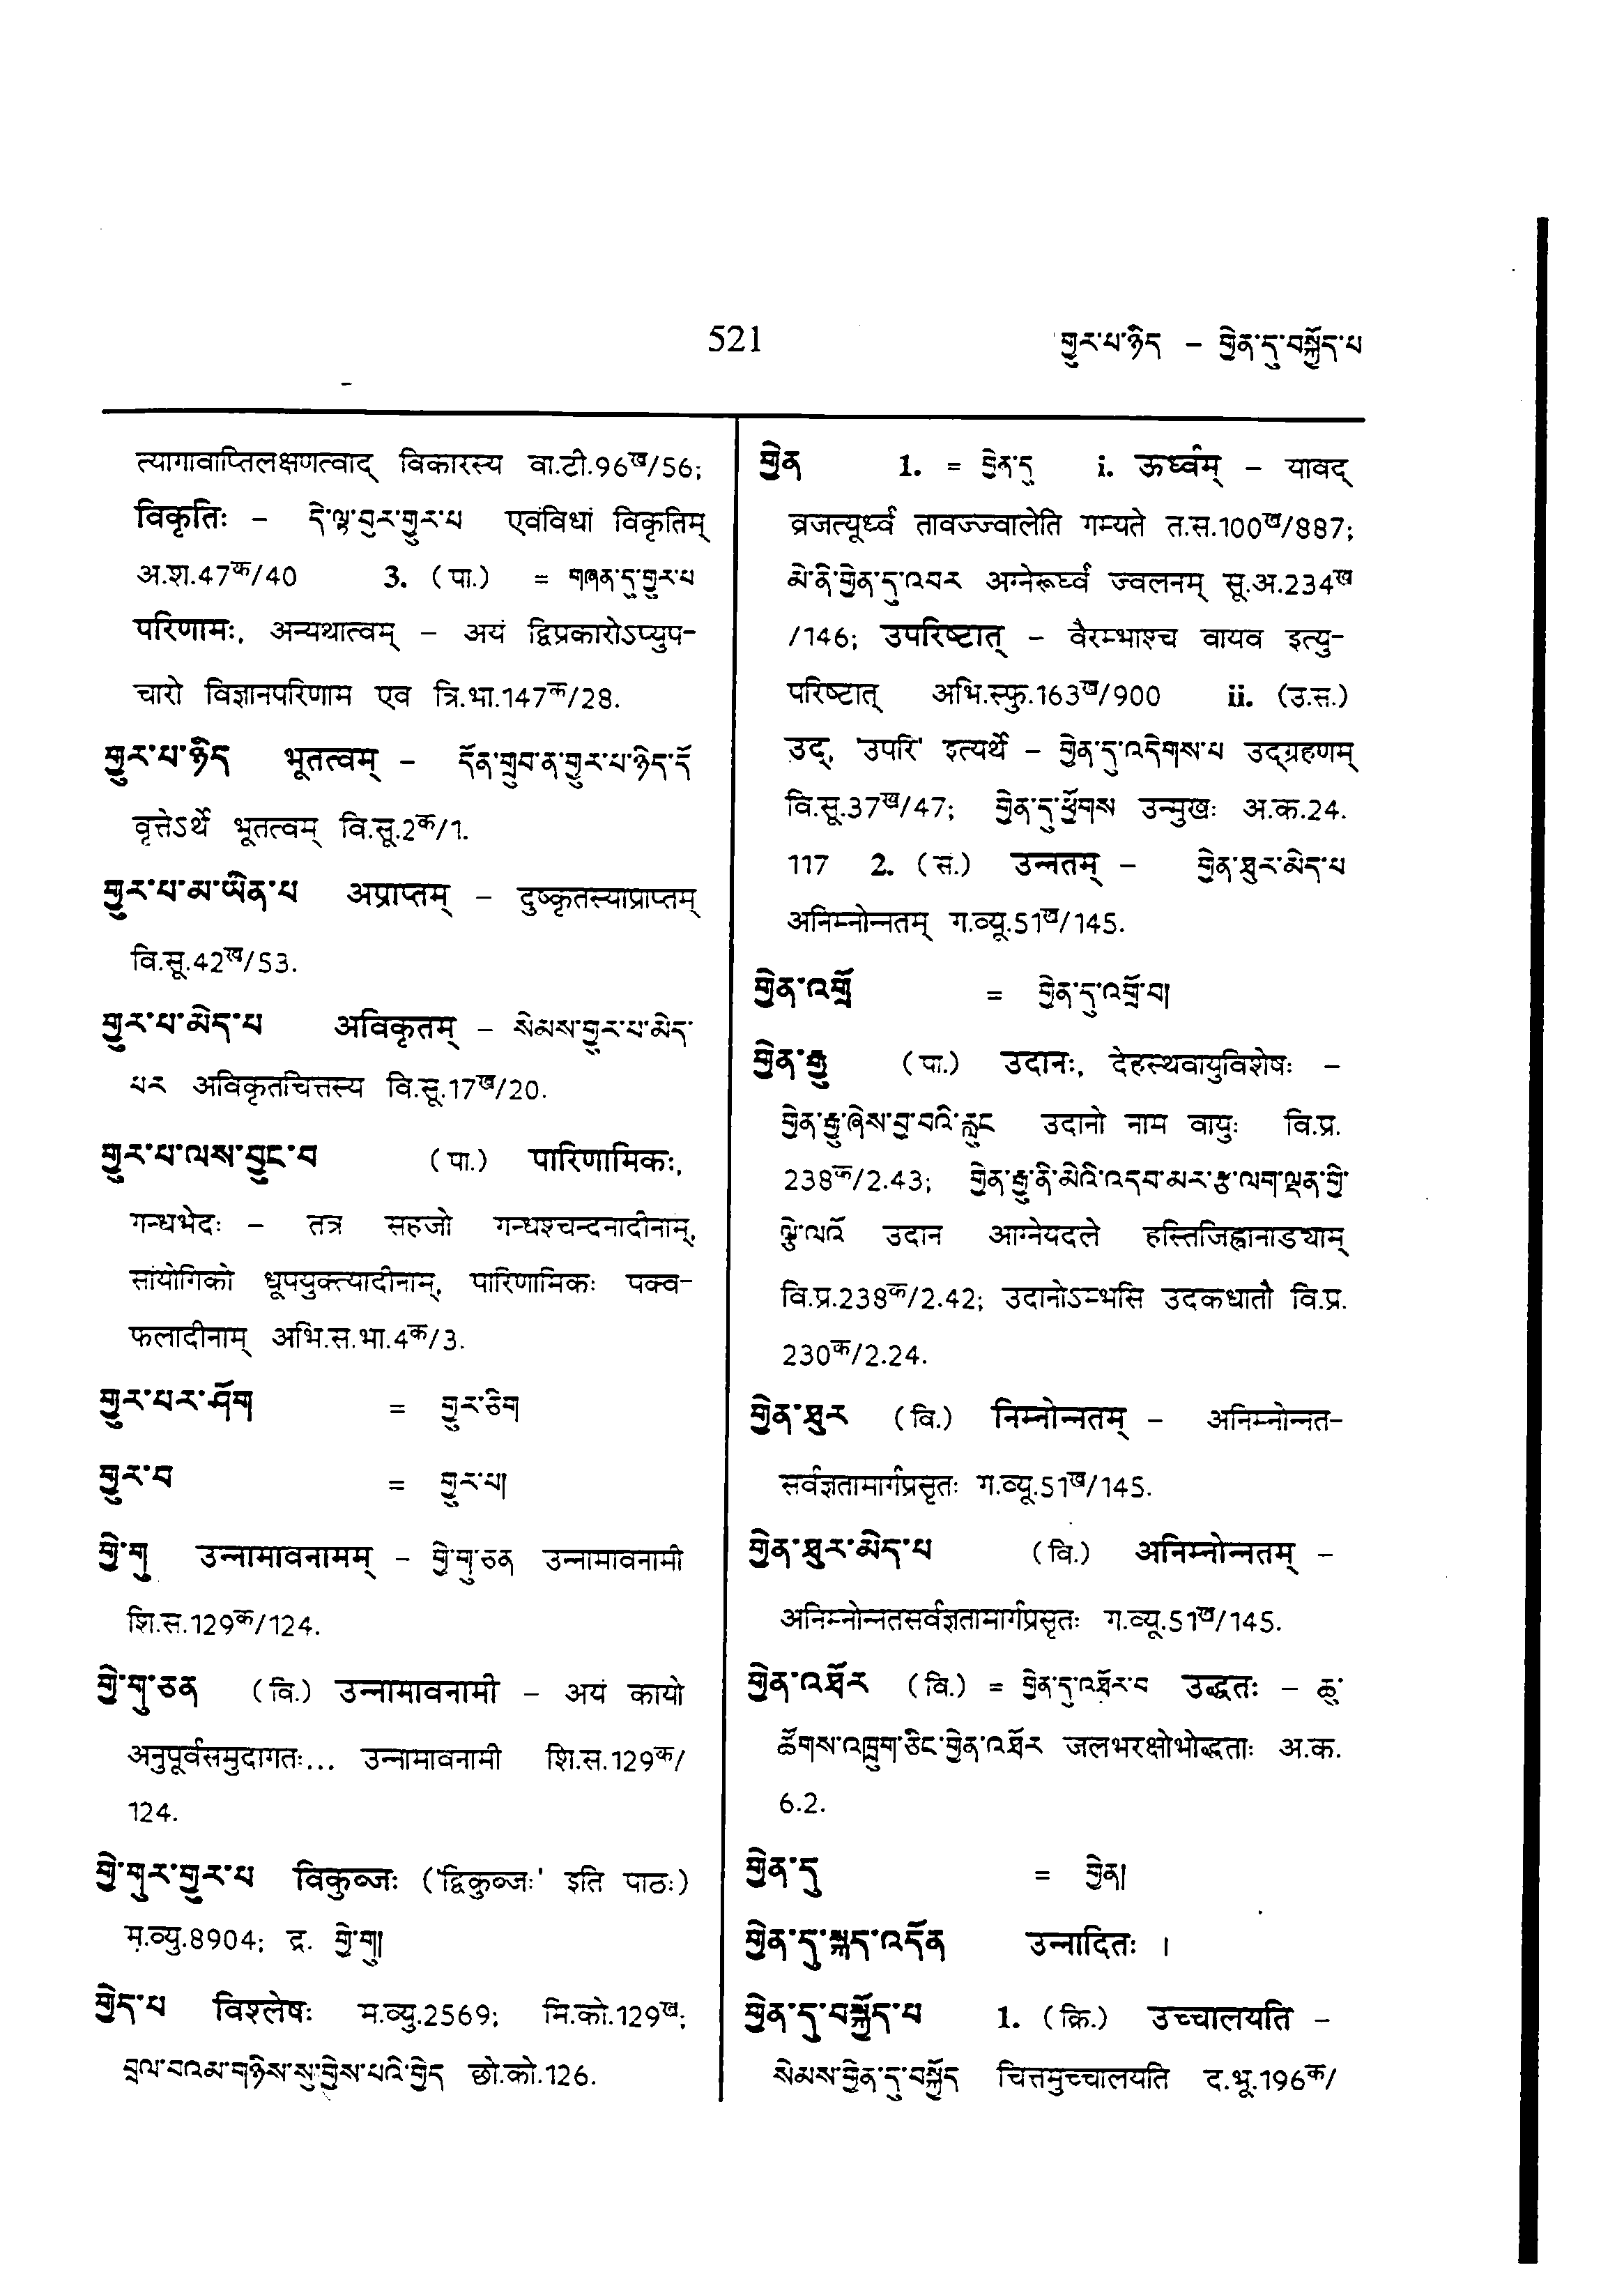 521
གྱུར་པ་ཉིད – གྱེན་དུ་བསྐྱོད་པ
त्यागावाप्तिलक्षणत्वाद् विकारस्य वा.टी.96ख/56;
विकृतिः – དེ་ལྟ་བུར་གྱུར་པ एवंविधां विकृतिम्
अ.श.47क/40 3. (पा.) = གཞན་དུ་གྱུར་པ
परिणामः, अन्यथात्वम् – अयं द्विप्रकारोऽप्युप-
चारो विज्ञानपरिणाम एव त्रि.भा.147क/28.
གྱུར་པ་ཉིད भूतत्वम् – དོན་གྲུབ་ན་གྱུར་པ་ཉིད་དོ
वृत्तेऽर्थे भूतत्वम् वि.सू.2क/1.
གྱུར་པ་མ་ཡིན་པ अप्राप्तम् – दुष्कृतस्याप्राप्तम्
वि.सू.42ख/53.
གྱུར་པ་མེད་པ अविकृतम् – སེམས་གྱུར་པ་མེད་
པར अविकृतचित्तस्य वि.सू.17ख/20.
གྱུར་པ་ལས་བྱུང་བ (पा.) पारिणामिकः,
गन्धभेदः – तत्र सहजो गन्धश्चन्दनादीनाम्,
सांयोगिको धूपयुक्त्यादीनाम्, पारिणामिकः पक्व-
फलादीनाम् अभि.स.भा.4क/3.
གྱུར་པར་ཤོག = གྱུར་ཅིག
གྱུར་བ = གྱུར་པ།
གྱེ་གུ उन्नामावनामम् – གྱེ་གུ་ཅན उन्नामावनामी
शि.स.129क/124.
གྱེ་གུ་ཅན (वि.) उन्नामावनामी – अयं कायो
अनुपूर्वसमुदागतः... उन्नामावनामी शि.स.129क/
124.
གྱེ་གུར་གྱུར་པ विकुब्जः ('द्विकुब्जः' इति पाठः)
म.व्यु.8904; द्र. གྱེ་གུ།
གྱེད་པ विश्लेषः म.व्यु.2569; मि.को.129ख;
བྲལ་བའམ་གཉིས་སུ་གྱེས་པའི་གྱེད छो.को.126.
གྱེན 1. = གྱེན་དུ i. ऊर्ध्वम् – यावद्
व्रजत्यूर्ध्वं तावज्ज्वालेति गम्यते त.स.100ख/887;
མེ་ནི་གྱེན་དུ་འབར अग्नेरूर्ध्वं ज्वलनम् सू.अ.234ख
/146; उपरिष्टात् – वैरम्भाश्च वायव इत्यु-
परिष्टात् अभि.स्फु.163ख/900 ii. (उ.स.)
उद्, 'उपरि' इत्यर्थे – གྱེན་དུ་འདེགས་པ उद्ग्रहणम्
वि.सू.37ख/47; གྱེན་དུ་ཕྱོགས उन्मुखः अ.क.24.
117 2. (सं.) उन्नतम् – གྱེན་ཐུར་མེད་པ
अनिम्नोन्नतम् ग.व्यू.51ख/145.
གྱེན་འགྲོ = གྱེན་དུ་འགྲོ་བ།
གྱེན་རྒྱུ (पा.) उदानः, देहस्थवायुविशेषः –
གྱེན་རྒྱུ་ཞེས་བྱ་བའི་རླུང उदानो नाम वायुः वि.प्र.
238क/2.43; གྱེན་རྒྱུ་ནི་མེའི་འདབ་མར་རྩ་ལག་ལྡན་གྱི་
ལྕེ་ལའོ उदान आग्नेयदले हस्तिजिह्वानाड्याम्
वि.प्र.238क/2.42; उदानोऽम्भसि उदकधातौ वि.प्र.
230क/2.24.
གྱེན་ཐུར (वि.) निम्नोन्नतम् – अनिम्नोन्नत-
सर्वज्ञतामार्गप्रसृतः ग.व्यू.51ख/145.
གྱེན་ཐུར་མེད་པ (वि.) अनिम्नोन्नतम् –
अनिम्नोन्नतसर्वज्ञतामार्गप्रसृतः ग.व्यू.51ख/145.
གྱེན་འཐོར (वि.) = གྱེན་དུ་འཐོར་བ उद्धतः – ཆུ་
ཚོགས་འཁྲུག་ཅིང་གྱེན་འཐོར जलभरक्षोभोद्धताः अ.क.
6.2.
གྱེན་དུ = གྱེན།
གྱེན་དུ་སྐད་འདོན उन्नादितः ।
གྱེན་དུ་བསྐྱོད་པ 1. (क्रि.) उच्चालयति –
སེམས་གྱེན་དུ་བསྐྱོད चित्तमुच्चालयति द.भू.196क/